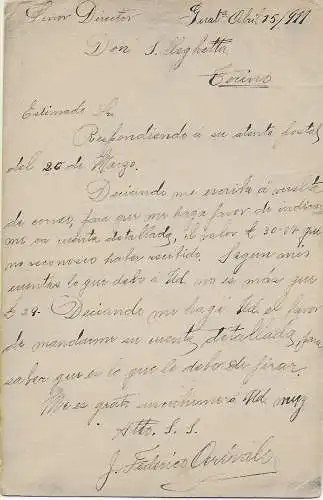 Señor Director Abril 15/911
Don S.
Torino
Estimado Sr.
Respondiendo a su atenta postal
del 26 de Marzo.
Deseando me escriba á vuelta
de correo, para que me haga favor de indicar
me en cuenta detallada, el valor £ 30-07 que
no reconosco haber recibido. Segun mis
cuentas lo que debo á Ud. no es más que
£ 24- Deseando me haga Ud. el favor
de mandarme su cuenta detallada, para
saber que es lo que le debo de girar.
Me es grato Ud. muy
Atto. S. S.
J. Federico